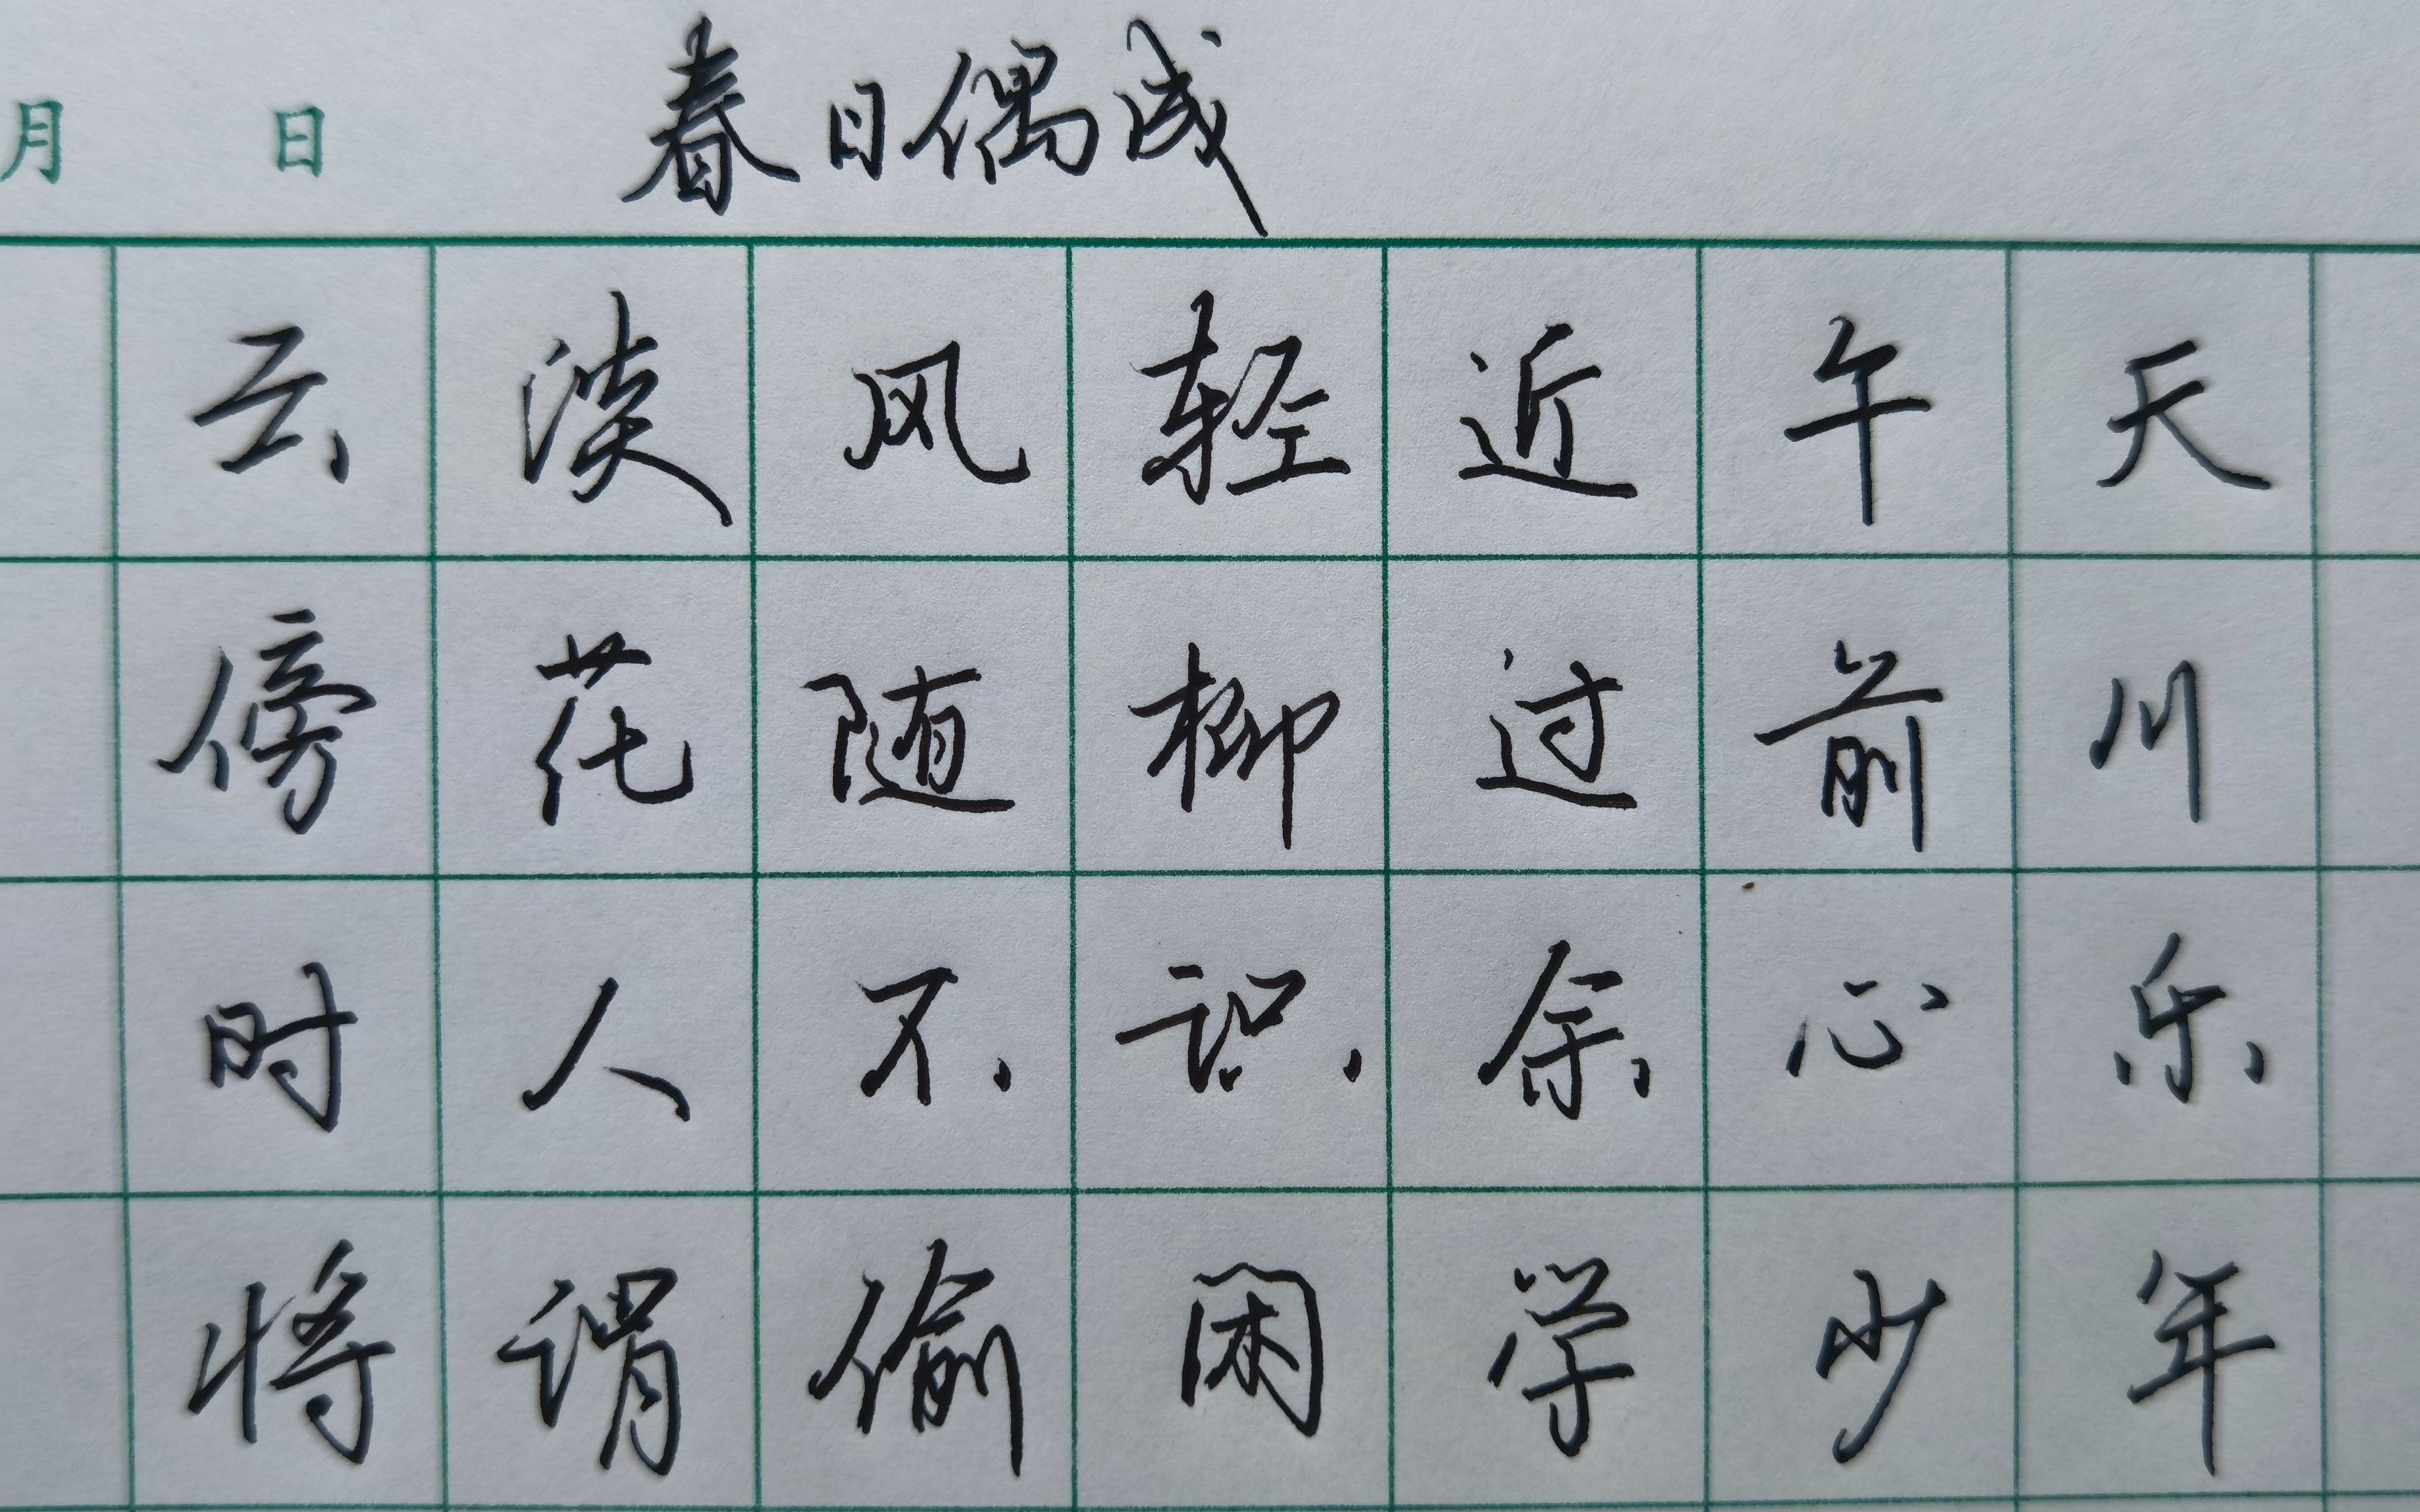 月 日 春日偶成
云淡风轻近午天
傍花随柳过前川
时人不识余心乐
将谓偷闲学少年